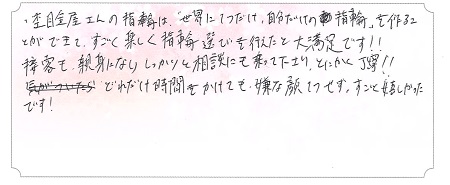 ・杢目金屋さんの指輪は、“世界に1つだけ、自分だけの指輪”を作るこ
とができて、すごく楽しく指輪選びを行えたと大満足です!!
接客も、親身になり、しっかりと相談にも乗って下さり、とにかく丁寧!!
どれだけ時間をかけても、嫌な顔1つせず、すごく嬉しかった
です!